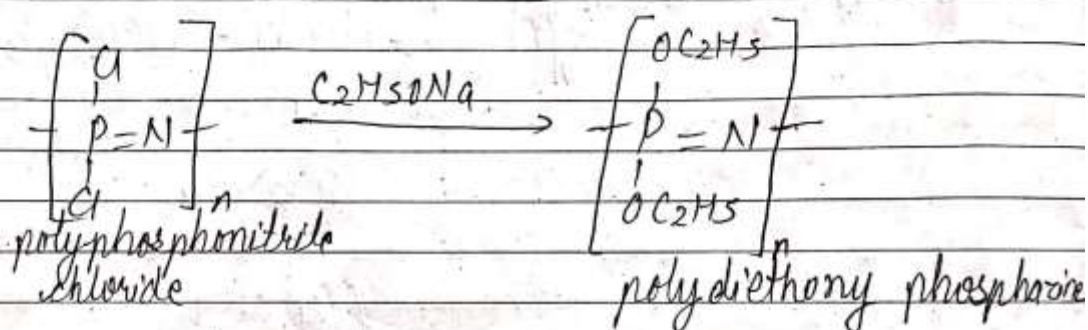 Cl OC2H5
P=N C2H5ONa P = N
Cl n OC2H5 n
polyphosphonitrile
chloride polydiethony phosphazine